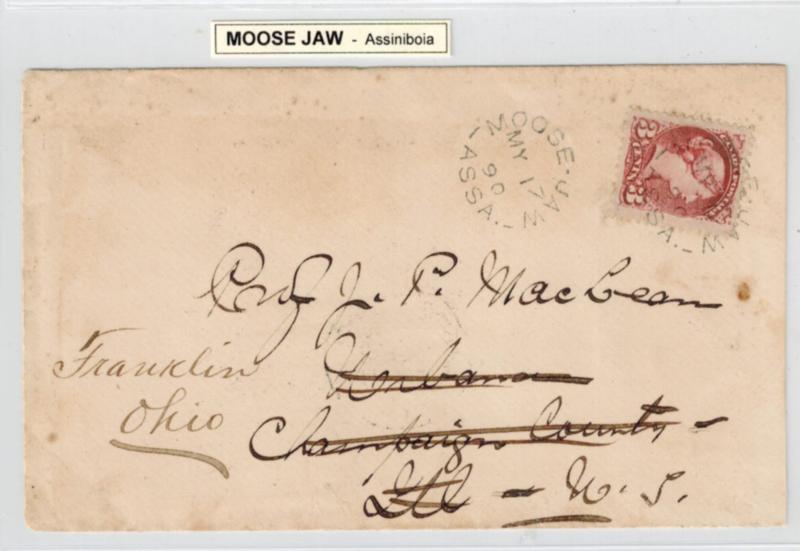 MOOSE JAW - Assiniboia
MOOSE-JAW
MY 17
90
ASSA.
3 CENTS 3
MOOSE-JAW
ASSA.
Prof J. P. MacLean
Urbana
Champaign County
Ill - U. S.
Franklin
Ohio